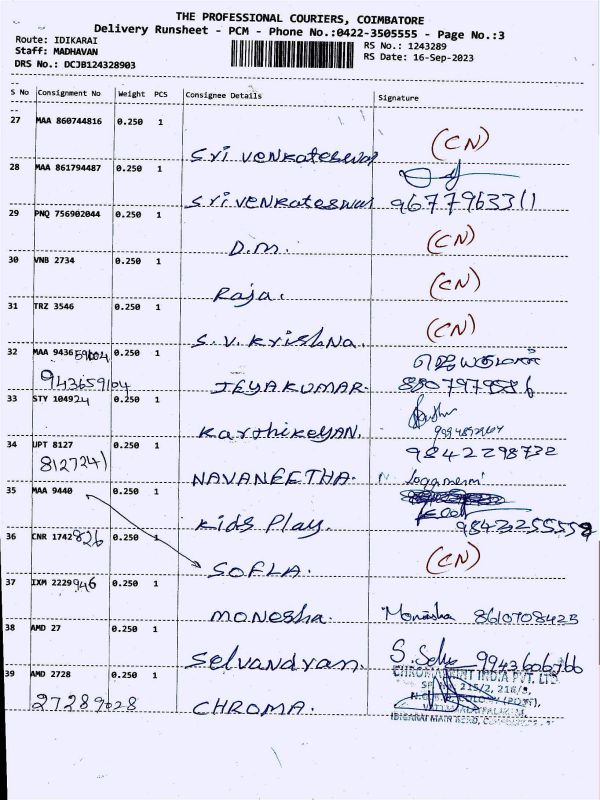 THE PROFESSIONAL COURIERS, COIMBATORE
Delivery Runsheet - PCM - Phone No.:0422-3505555 - Page No.:3
Route: IDIKARAI
RS No.: 1243289
Staff: MADHAVAN
RS Date: 16-Sep-2023
DRS No.: DCJB124328903
S No Consignment No Weight PCS Consignee Details Signature
27 MAA 860744816 0.250 1
Sri Venkateswar (CN)
28 MAA 861794487 0.250 1
Sri Venkateswar 9677963311
29 PNQ 756902044 0.250 1
D.M. (CN)
30 VNB 2734 0.250 1
Raja. (CN)
31 TRZ 3546 0.250 1
S.V. Krishna. (CN)
32 MAA 9436 0.250 1
943659104 JEYAKUMAR.
33 STY 104924 0.250 1
Karthikeyan.
34 UPT 8127 0.250 1 9842298732
8127241 NAVANEETHA.
35 MAA 9440 0.250 1
Kids Play.
36 CNR 1742826 0.250 1
SOFLA. (CN)
37 IXM 2229946 0.250 1
Monesha. Monisha 8610708425
38 AMD 27 0.250 1
Selvandran. S. 9943606766
39 AMD 2728 0.250 1 CHROMAPRINT INDIA PVT. LTD.
27289028 CHROMA.